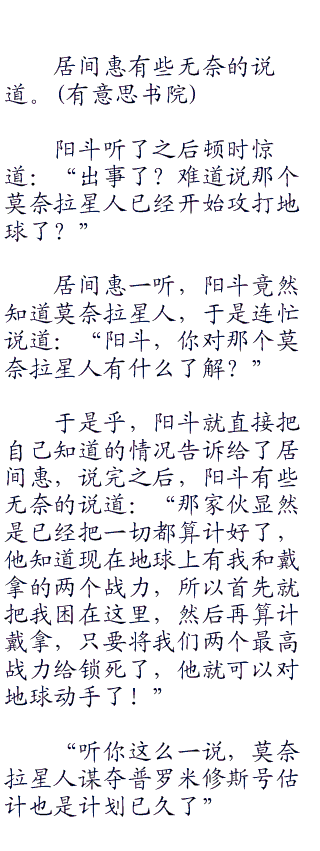 居间惠有些无奈的说
道。(有意思书院)
阳斗听了之后顿时惊
道：“出事了？难道说那个
莫奈拉星人已经开始攻打地
球了？”
居间惠一听，阳斗竟然
知道莫奈拉星人，于是连忙
说道：“阳斗，你对那个莫
奈拉星人有什么了解？”
于是乎，阳斗就直接把
自己知道的情况告诉给了居
间惠，说完之后，阳斗有些
无奈的说道：“那家伙显然
是已经把一切都算计好了，
他知道现在地球上有我和戴
拿的两个战力，所以首先就
把我困在这里，然后再算计
戴拿，只要将我们两个最高
战力给锁死了，他就可以对
地球动手了！”
“听你这么一说，莫奈
拉星人谋夺普罗米修斯号估
计也是计划已久了”